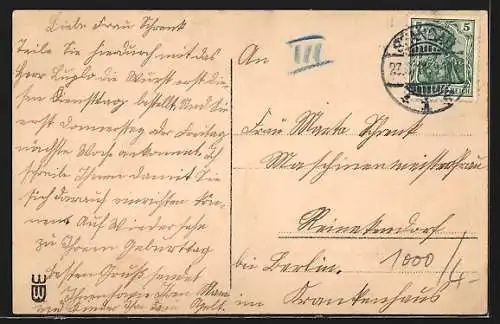 Liebe Frau Schrenk
Teile Sie hierdurch mit das
Herr Luplo die Wurst erst die
sen Dienstag bestellt. Und Sie
erst Donnerstag oder Freitag
nächste Woche ankommt. Ich
schreibe Ihnen damit Sie
sich darauf einrichten kön-
nen. Auf Wiedersehn
zu Ihrem Geburttag
besten Gruß sendet
An
III
Frau Marta Schrenk
Maschinenmeisterfrau
Reinekendorf
bei Berlin. 1000
im Krankenhaus
4-
5